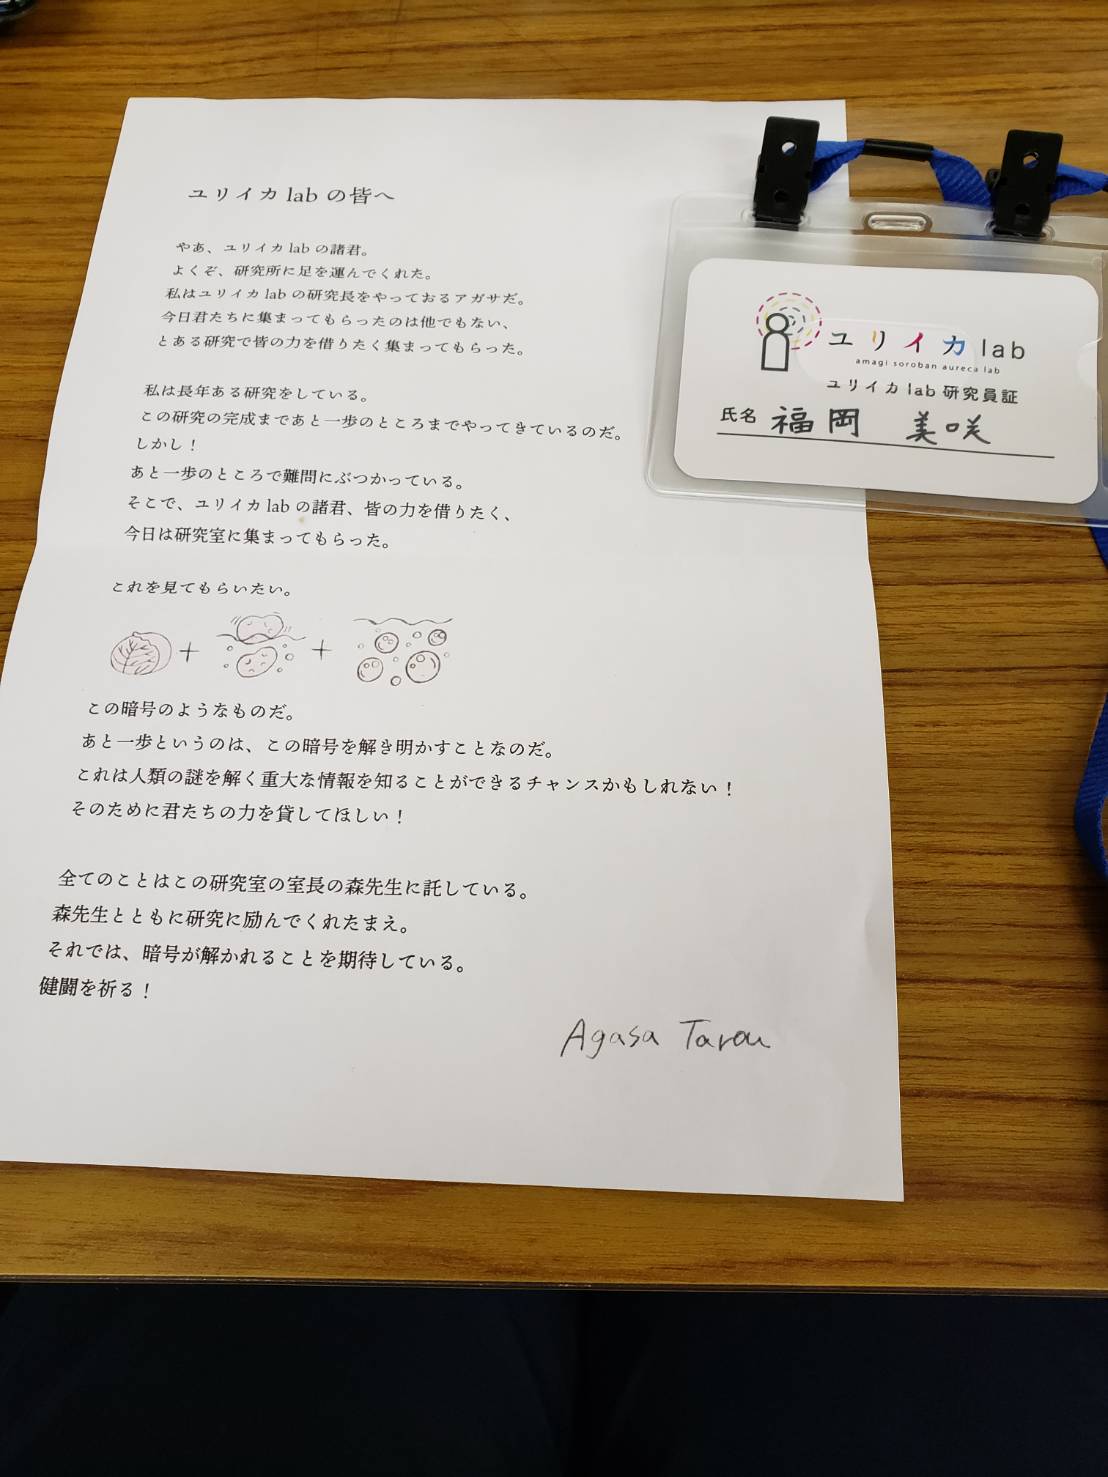 ユリイカ lab の皆へ
やあ、ユリイカ lab の諸君。
よくぞ、研究所に足を運んでくれた。
私はユリイカ lab の研究長をやっておるアガサだ。
今日君たちに集まってもらったのは他でもない、
とある研究で皆の力を借りたく集まってもらった。
私は長年ある研究をしている。
この研究の完成まであと一歩のところまでやってきているのだ。
しかし！
あと一歩のところで難問にぶつかっている。
そこで、ユリイカ lab の諸君、皆の力を借りたく、
今日は研究室に集まってもらった。
これを見てもらいたい。
+ +
この暗号のようなものだ。
あと一歩というのは、この暗号を解き明かすことなのだ。
これは人類の謎を解く重大な情報を知ることができるチャンスかもしれない！
そのために君たちの力を貸してほしい！
全てのことはこの研究室の室長の森先生に託している。
森先生とともに研究に励んでくれたまえ。
それでは、暗号が解かれることを期待している。
健闘を祈る！
Agasa Tarou
ユリイカ lab
amagi soroban aureca lab
ユリイカ lab 研究員証
氏名 福岡 美咲